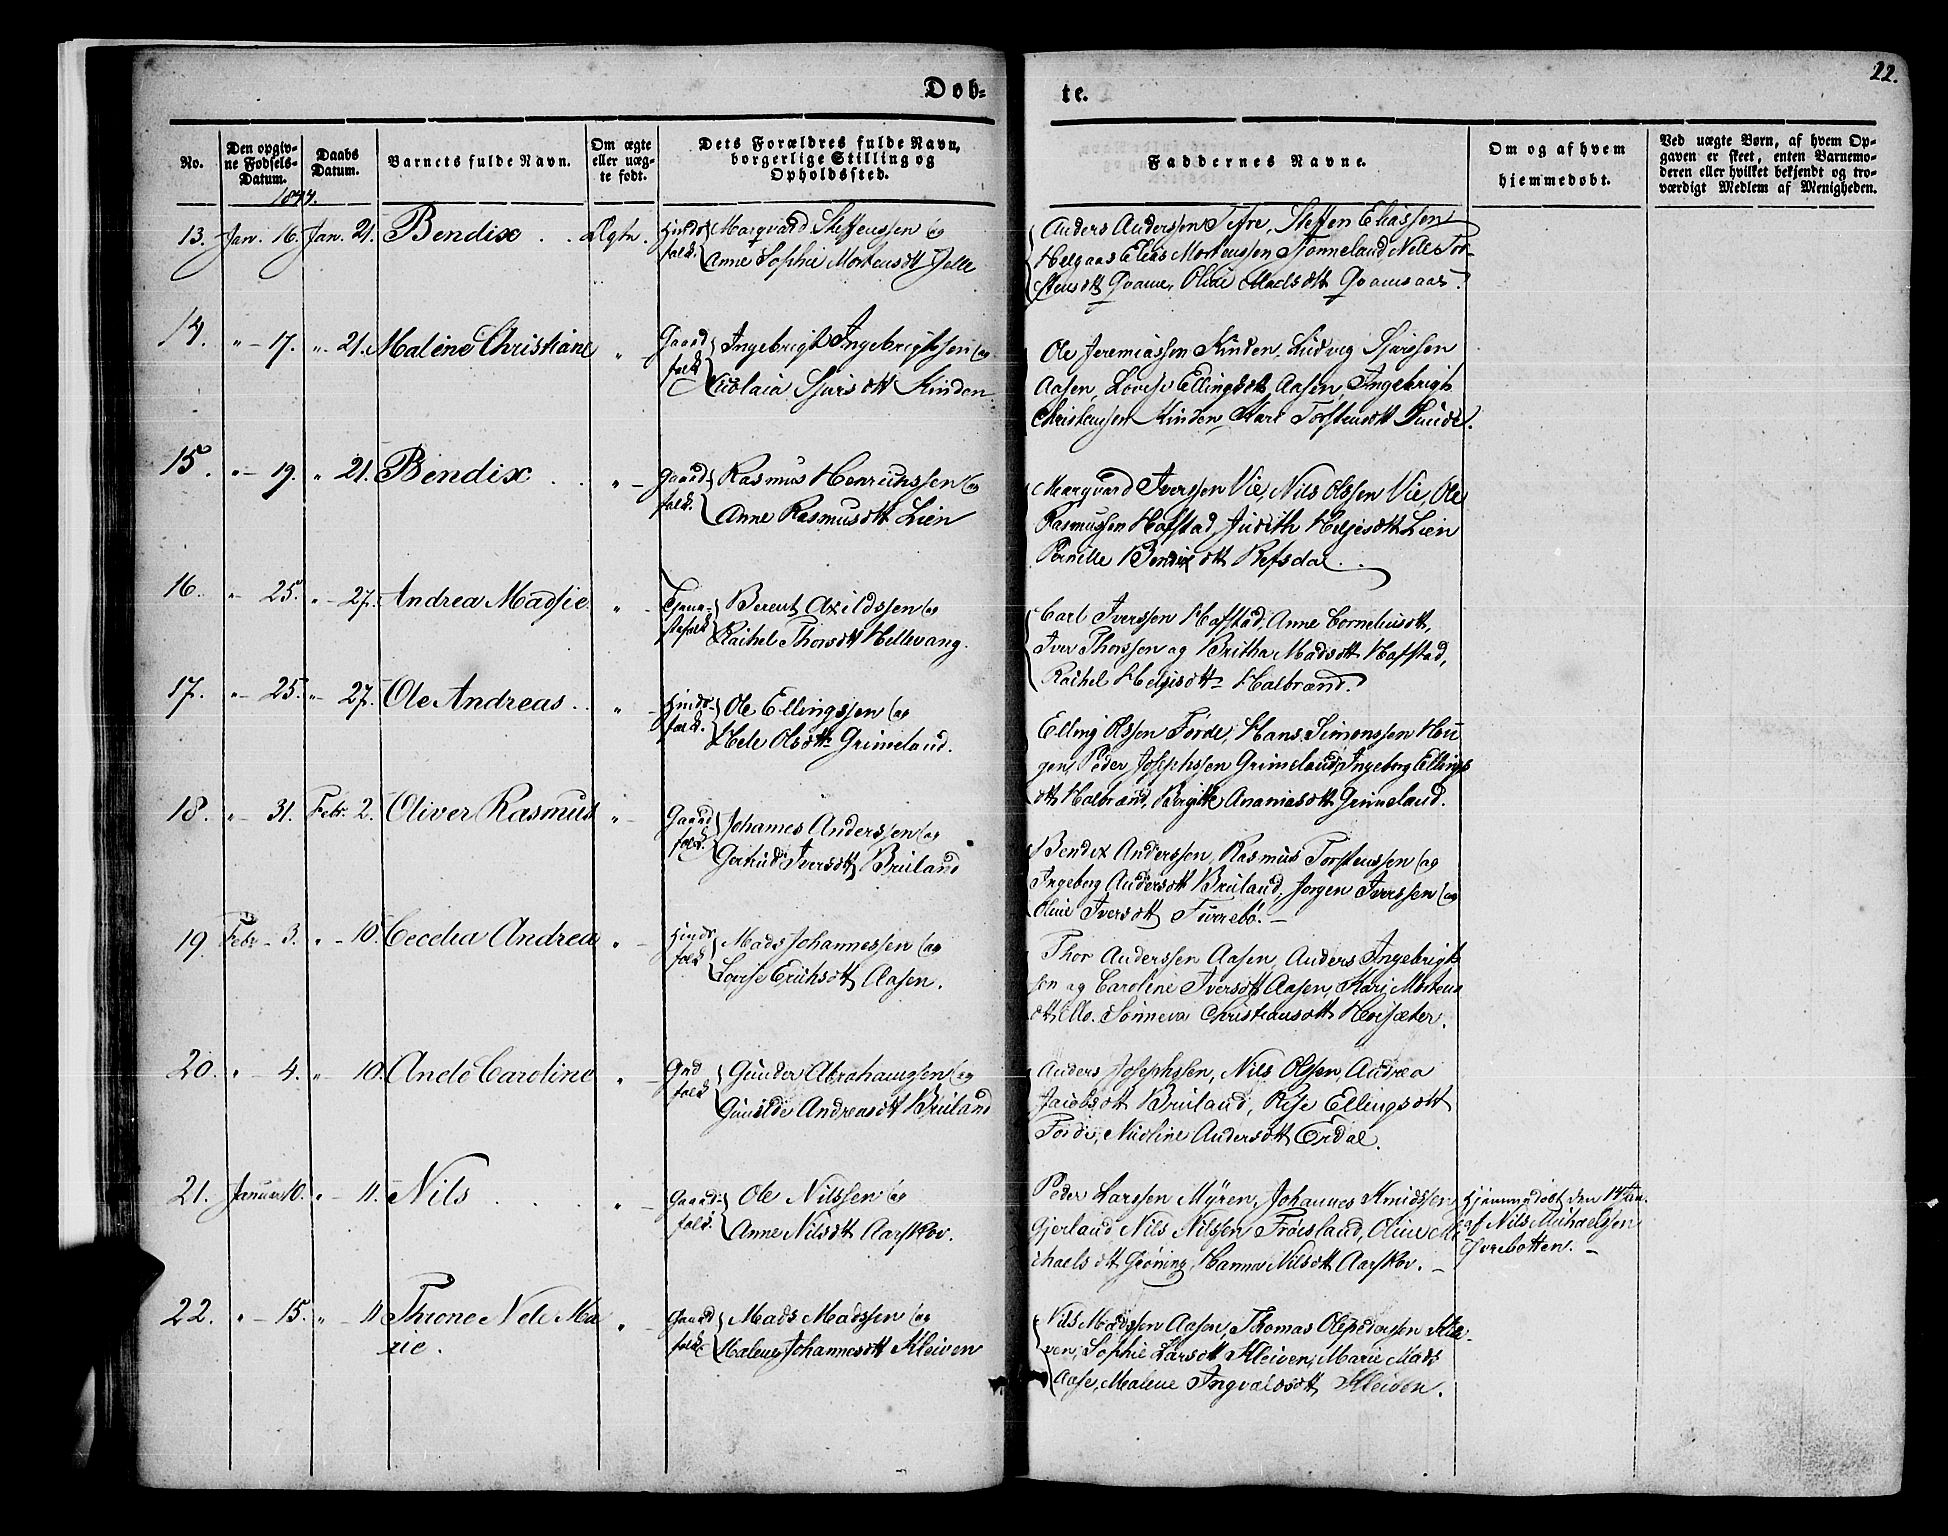 22.
Døb-
te.
No.
Den opgiv-
ne Fødsels-
Datum.
Daabs
Datum.
Barnets fulde Navn.
Om ægte
eller uæg-
te født.
Dets Forældres fulde Navn,
borgerlige Stilling og
Opholdssted.
Faddernes Navne.
Om og af hvem
hjemmedøbt.
Ved uægte Børn, af hvem Op-
gaven er skeet, enten Barnemo-
deren eller hvilket bekjendt og tro-
værdigt Medlem af Menigheden.
1844.
13. Jan. 16. Jan. 21. Bendix . . Ægte.
Huus folk. Marqvard Steffenssen og
Anne Sophie Mortensdtt
Anders Anderssen Tefre, Steffen Eliassen
Helgaas Elias Mortenssen Tonneland Nele Tor-
stensdtt Qvame, Oline Madsdtt Qvamsaas.
14. " - 17. " 21. Malene Christiane "
Gaard folk Ingebrigt Ingebrigtssen og
Nicolaia Sjursdtt Kinden
Ole Jeremiassen Kinden, Ludvig Sjurssen
Aasen, Lovise Ellingsdtt Aasen, Ingebrigt
Christenssen Kinden, Kari Torstensdtt Sunde.
15. " - 19. " 21. Bendix . . " -
Gaard folk. Rasmus Henrichssen og
Anne Rasmusdtt Lien
Marqvard Iverssen Vie, Nils Olssen Vie, Ole
Rasmussen Hafstad, Judith Helgesdtt Lien
Pernille Bendixdtt Refsdal.
16. " - 25. " - 27. Andrea Madsie. " -
Tjene- stefolk Berent Axildssen og
Rachel Thorsdtt Hellevang.
Carl Iverssen Hafstad, Anne Corneliusdtt,
Iver Thorssen og Britha Madsdtt Hafstad,
Rachel Helgesdtt Halbrend.
17. " - 25. " - 27. Ole Andreas. . " -
Huus- folk. Ole Ellingssen og
Nele Olsdtt Grimeland.
Elling Olssen Førde, Hans Simonssen Hau-
gen, Peder Josephssen Grimeland, Ingeborg Ellings
dtt Halbrend, Birgitte Ananiasdtt Grimeland.
18. " - 31. Febr. 2. Oliver Rasmus " -
Gaard folk. Johannes Anderssen og
Gertrud Iversdtt Bruland
Bendix Anderssen, Rasmus Torstenssen og
Ingeborg Andersdtt Bruland, Jørgen Iverssen og
Oline Iversdtt Farebø. -
19. Febr - 3. " - 10. Cecelia Andrea " -
Huus folk Mads Johannessen og
Lovise Erichsdtt Aasen.
Thor Anderssen Aasen, Anders Ingebrigt-
sen og Caroline Iversdtt Aasen, Kari Mortens
dtt Mo. Sønneva Christiansdtt Høisæter.
20. " - 4. " - 10. Ande Caroline " -
Grd folk Gunder Abrahamssen og
Gunilde Andreasdtt Bruland
Anders Josephssen, Nils Olssen, Andrea
Jacobsdtt Bruland, Rise Ellingsdtt
Førde, Nicoline Andersdtt Erdal.
21. Januar 10. " - 11. Nils . . . " -
Gaard- folk. Ole Nilssen og
Anne Nilsdtt Aarskov.
Peder Larssen Myren, Johannes Knudssen
Gjerland, Nils Nilssen Frøisland, Oline Mi-
chaelsdtt Grøning, Hanna Nilsdtt Aarskov. -
Hjemmedøbt den 14 Jan.
af Nils Michaelssen
22. " - 15. " - 11 Throne Nele Ma
rie. " -
Gaard folk Mads Madssen og
Malene Johannesdtt Kleiven
Nils Madssen Aasen, Thomas Olepederssen Klei-
ven, Sophie Larsdtt Kleiven, Marie Mads
Aase, Malene Ingvaldsdtt Kleiven.